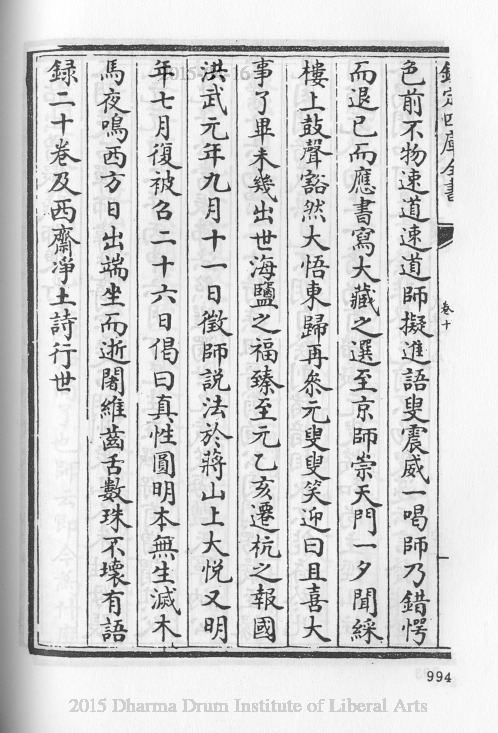 欽定四庫全書
卷十
色前不物速道速道師擬進語叟震威一喝師乃錯愕
而退已而應書寫大藏之選至京師崇天門一夕聞綵
樓上鼓聲豁然大悟東歸再叅元叟叟笑迎曰且喜大
事了畢未幾出世海鹽之福臻至元乙亥遷杭之報國
洪武元年九月十一日徵師説法於蔣山上大悦又明
年七月復被召二十六日偈曰真性圓明本無生滅木
馬夜鳴西方日出端坐而逝闍維齒舌數珠不壞有語
録二十卷及西齋淨土詩行世
994
2015 Dharma Drum Institute of Liberal Arts